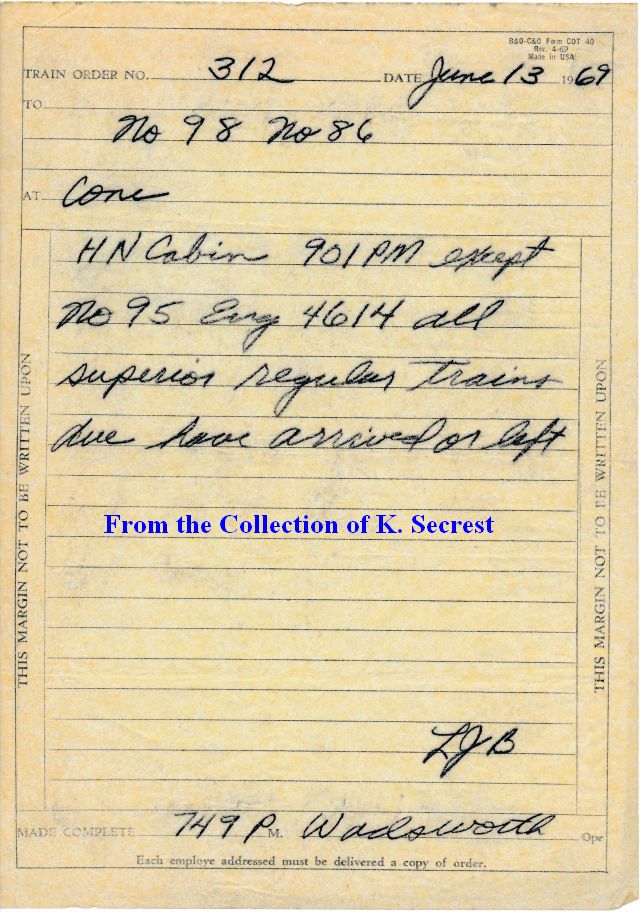 B&O-C&O Form CDT 40
Rev. 4-69
Made in USA
TRAIN ORDER NO. 312 DATE June 13 1969
TO
No 98 No 86
AT Cone
HN Cabin 901 PM except
No 95 Eng 4614 all
superior regular trains
due have arrived or left
THIS MARGIN NOT TO BE WRITTEN UPON
THIS MARGIN NOT TO BE WRITTEN UPON
From the Collection of K. Secrest
LJB
MADE COMPLETE 749 P M. Wadsworth Ope
Each employe addressed must be delivered a copy of order.